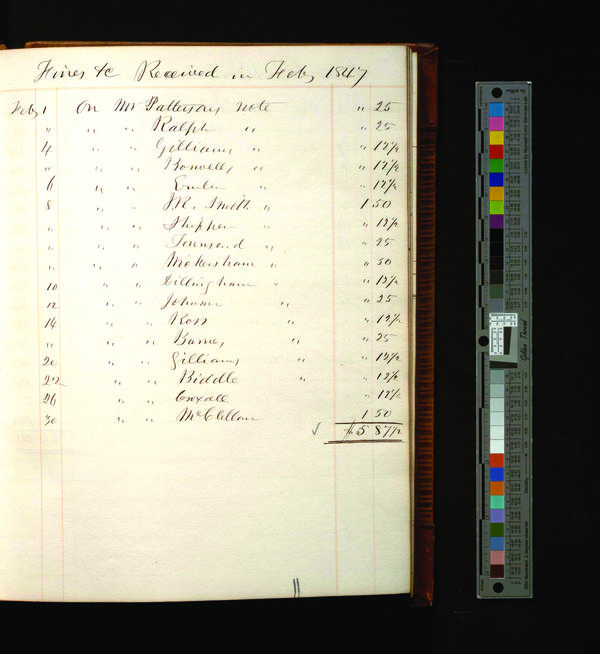 Fines &c Received in Feby 1847
Feby 1 On Mr Pattersons Note " 25
" " " Ralph " " 25
4 " " Gilliams " " 12½
" " " Boswells " " 12½
6 " " Emlen " " 12½
8 " " J R. Smith " 1 50
" " " Shippen " " 12½
" " " Townsend " " 25
" " " Mokersham " " 50
10 " " Dillingham " " 12½
12 " " Johnson " " 25
14 " " Ross " " 12½
" " " Barnes " " 25
20 " " Gilliams " " 12½
22 " " Biddle " " 12½
26 " " Coxall " 12½
30 " " McClellan 1 50
√ $5 87½
Golden Thread